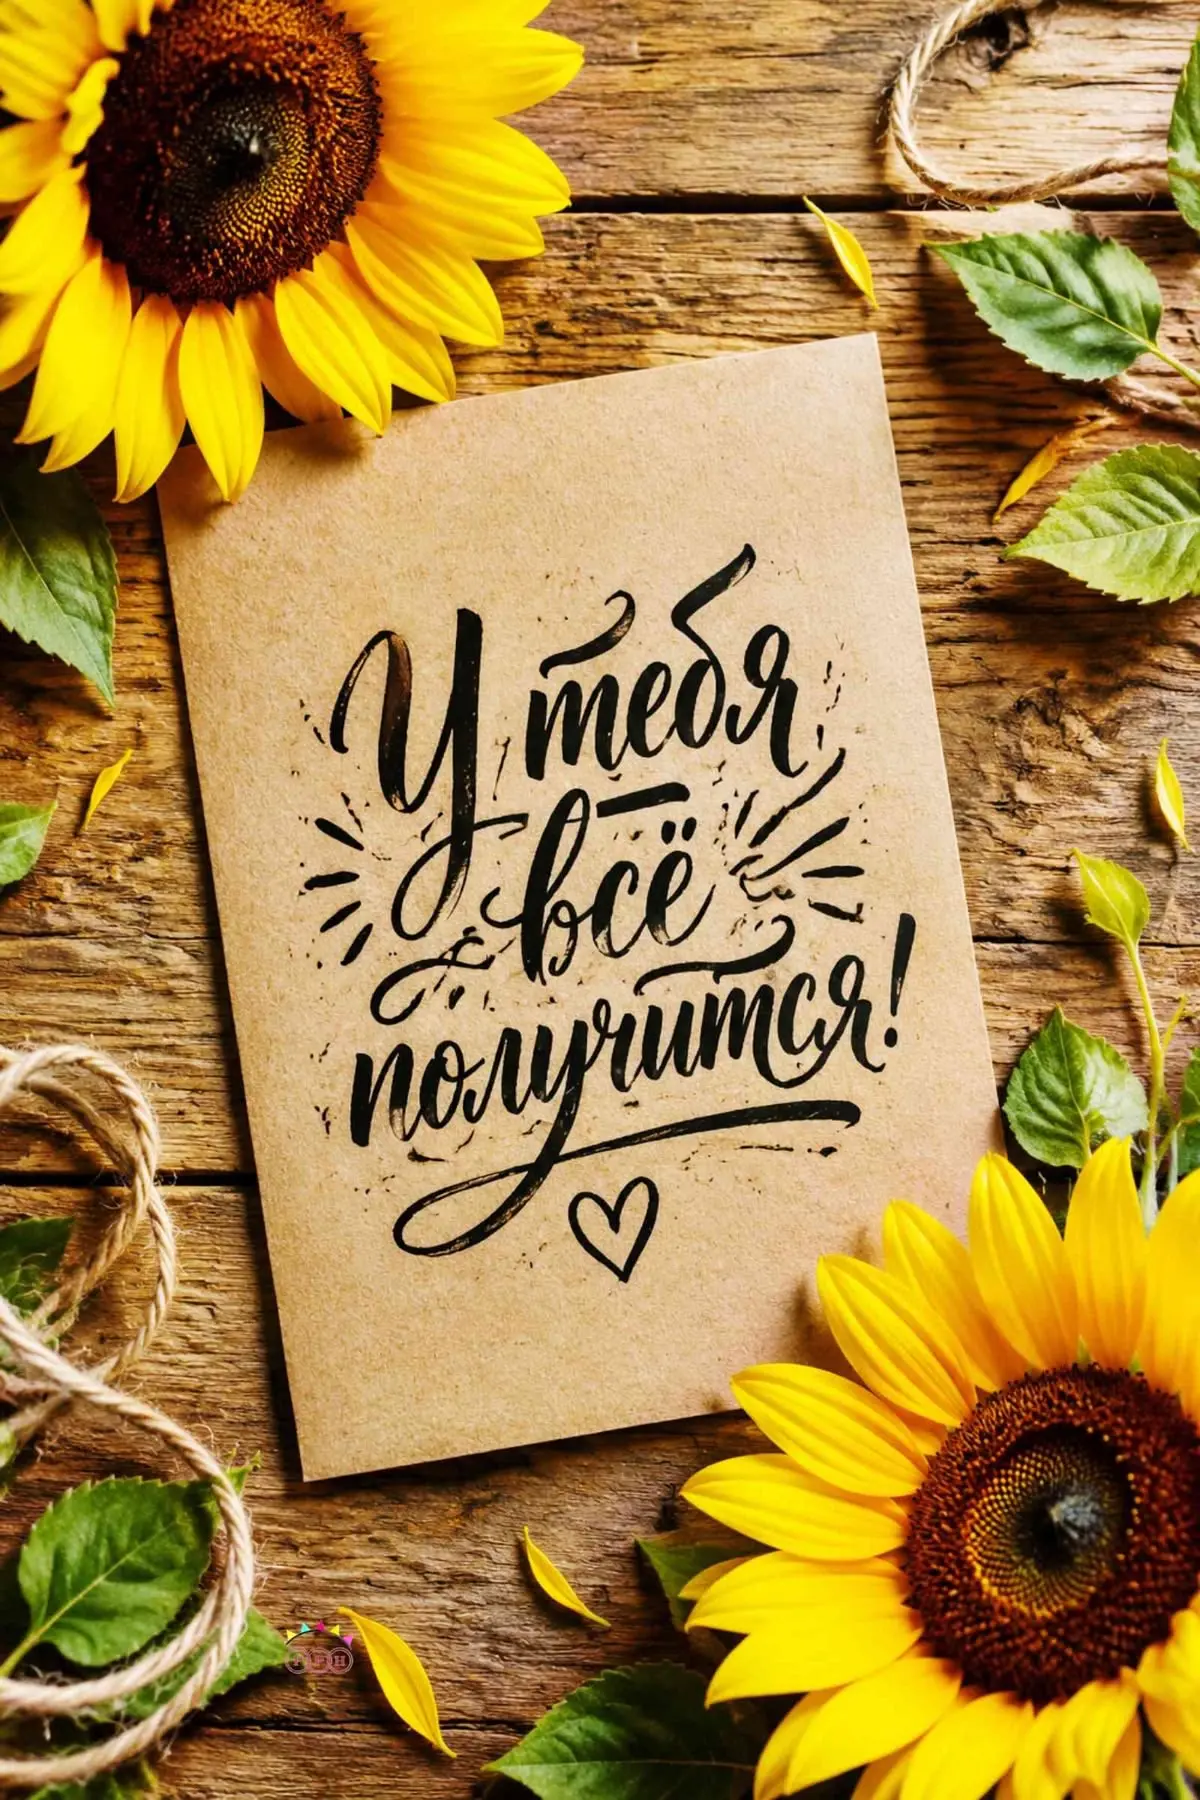 У тебя
всё
получится!